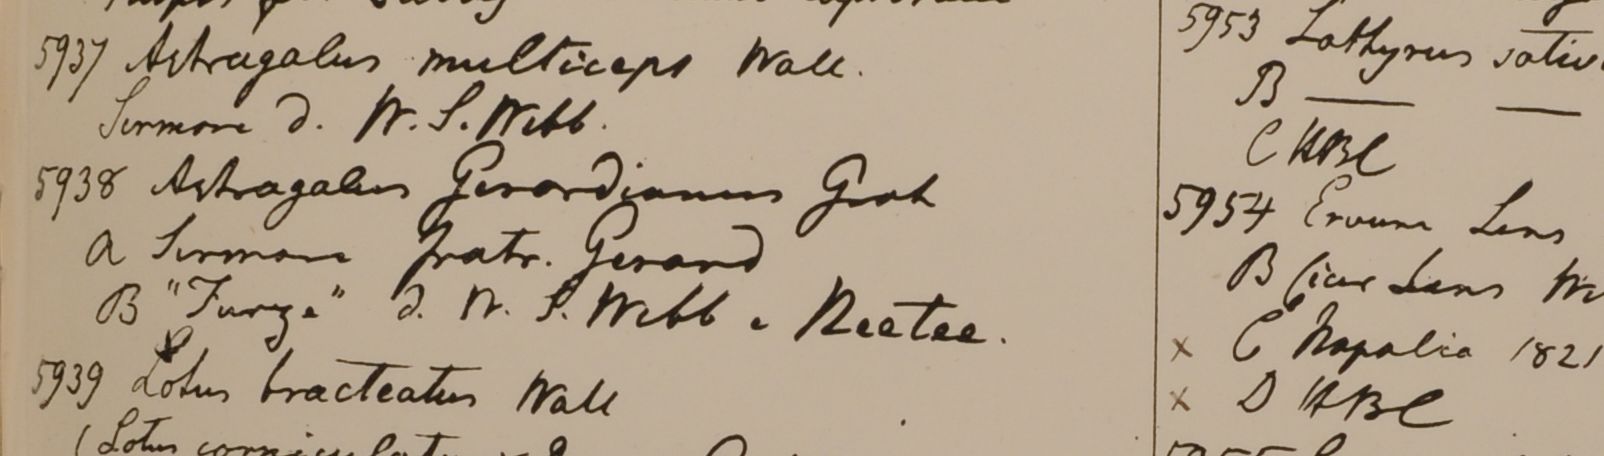 5937 Astragalus multiceps Wall.
Sirmore d. W. S. Webb.
5938 Astragalus Gerardianus Grah
a Sirmore fratr. Gerard
B "Furze" d. W. S. Webb e Neetee.
5939 Lotus bracteatus Wall
(Lotus corniculatus
5953 Lathyrus sativ
B — —
C HBC
5954 Ervum Lens
B Cicer Lens
× C Napalia 1821
× D HBC